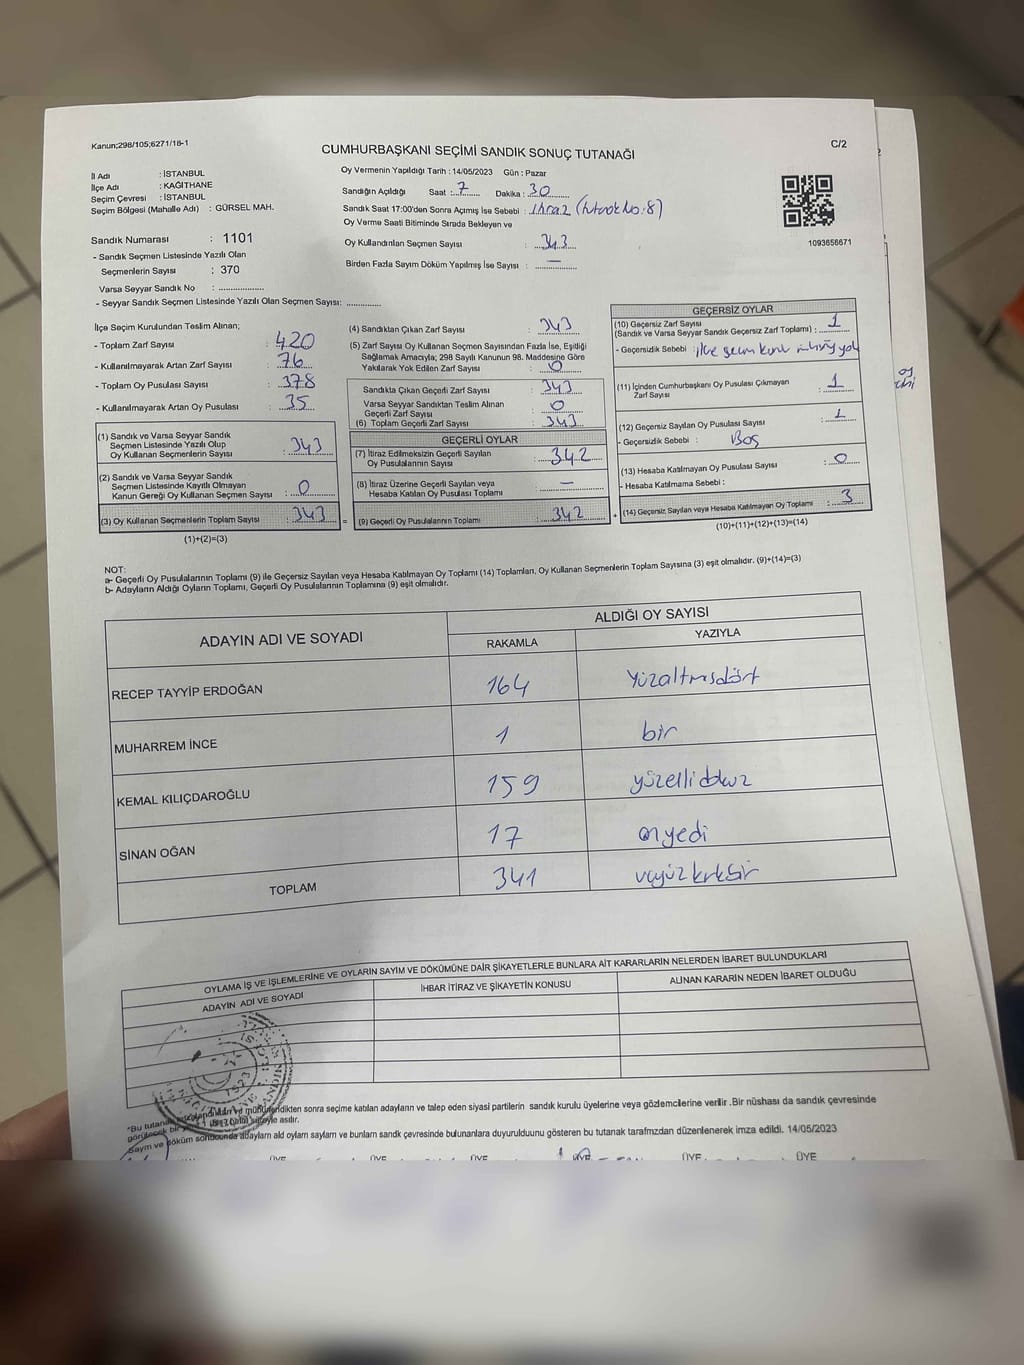 Kanun;298/105;6271/18-1
C/2
CUMHURBAŞKANI SEÇİMİ SANDIK SONUÇ TUTANAĞI
İl Adı : İSTANBUL
İlçe Adı : KAĞITHANE
Seçim Çevresi : İSTANBUL
Seçim Bölgesi (Mahalle Adı) : GÜRSEL MAH.
Sandık Numarası : 1101
- Sandık Seçmen Listesinde Yazılı Olan
Seçmenlerin Sayısı : 370
Varsa Seyyar Sandık No : ....................
- Seyyar Sandık Seçmen Listesinde Yazılı Olan Seçmen Sayısı: ..............
Oy Vermenin Yapıldığı Tarih : 14/05/2023 Gün : Pazar
Sandığın Açıldığı Saat : 7 Dakika : 30
Sandık Saat 17:00'den Sonra Açımış İse Sebebi : (tutanak No: 8)
Oy Verme Saati Bitiminde Sırada Bekleyen ve
Oy Kullandırılan Seçmen Sayısı : 343
Birden Fazla Sayım Döküm Yapılmış İse Sayısı : —
1093656671
İlçe Seçim Kurulundan Teslim Alınan;
- Toplam Zarf Sayısı : 420
- Kullanılmayarak Artan Zarf Sayısı : 76
- Toplam Oy Pusulası Sayısı : 378
- Kullanılmayarak Artan Oy Pusulası : 35
(1) Sandık ve Varsa Seyyar Sandık
Seçmen Listesinde Yazılı Olup
Oy Kullanan Seçmenlerin Sayısı : 343
(2) Sandık ve Varsa Seyyar Sandık
Seçmen Listesinde Kayıtlı Olmayan
Kanun Gereği Oy Kullanan Seçmen Sayısı : 0
(3) Oy Kullanan Seçmenlerin Toplam Sayısı : 343
(1)+(2)=(3)
(4) Sandıktan Çıkan Zarf Sayısı : 343
(5) Zarf Sayısı Oy Kullanan Seçmen Sayısından Fazla İse, Eşitliği
Sağlamak Amacıyla; 298 Sayılı Kanunun 98. Maddesine Göre
Yakılarak Yok Edilen Zarf Sayısı : 0
Sandıkta Çıkan Geçerli Zarf Sayısı : 343
Varsa Seyyar Sandıktan Teslim Alınan
Geçerli Zarf Sayısı : 0
(6) Toplam Geçerli Zarf Sayısı : 343
GEÇERLİ OYLAR
(7) İtiraz Edilmeksizin Geçerli Sayılan
Oy Pusulalarının Sayısı : 342
(8) İtiraz Üzerine Geçerli Sayılan veya
Hesaba Katılan Oy Pusulası Toplamı : —
= (9) Geçerli Oy Pusulalarının Toplamı : 342
GEÇERSİZ OYLAR
(10) Geçersiz Zarf Sayısı
(Sandık ve Varsa Seyyar Sandık Geçersiz Zarf Toplamı) : 1
- Geçersizlik Sebebi : ilçe seçim kurulu mührü yok
(11) İçinden Cumhurbaşkanı Oy Pusulası Çıkmayan
Zarf Sayısı : 1
(12) Geçersiz Sayılan Oy Pusulası Sayısı : 1
- Geçersizlik Sebebi : Boş
(13) Hesaba Katılmayan Oy Pusulası Sayısı : 0
- Hesaba Katılmama Sebebi :
+ (14) Geçersiz Sayılan veya Hesaba Katılmayan Oy Toplamı : 3
(10)+(11)+(12)+(13)=(14)
NOT:
a- Geçerli Oy Pusulalarının Toplamı (9) ile Geçersiz Sayılan veya Hesaba Katılmayan Oy Toplamı (14) Toplamları, Oy Kullanan Seçmenlerin Toplam Sayısına (3) eşit olmalıdır. (9)+(14)=(3)
b- Adayların Aldığı Oyların Toplamı, Geçerli Oy Pusulalarının Toplamına (9) eşit olmalıdır.
ADAYIN ADI VE SOYADI
ALDIĞI OY SAYISI
RAKAMLA YAZIYLA
RECEP TAYYİP ERDOĞAN 164 Yüzaltmışdört
MUHARREM İNCE 1 bir
KEMAL KILIÇDAROĞLU 159 yüzellidokuz
SİNAN OĞAN 17 onyedi
TOPLAM 341 üçyüzkırkbir
OYLAMA İŞ VE İŞLEMLERİNE VE OYLARIN SAYIM VE DÖKÜMÜNE DAİR ŞİKAYETLERLE BUNLARA AİT KARARLARIN NELERDEN İBARET BULUNDUKLARI
ADAYIN ADI VE SOYADI
İHBAR İTİRAZ VE ŞİKAYETİN KONUSU
ALINAN KARARIN NEDEN İBARET OLDUĞU
*Bu tutanak sonra seçime katılan adayların ve talep eden siyasi partilerin sandık kurulu üyelerine veya gözlemcilerine verilir .Bir nüshası da sandık çevresinde
asılır.
Sayım ve döküm sonucunda adayların aldı oyların sayların ve bunların sandık çevresinde bulunanlara duyurulduunu gösteren bu tutanak tarafmzdan düzenlenerek imza edildi. 14/05/2023
ÜYE ÜYE ÜYE ÜYE ÜYE ÜYE